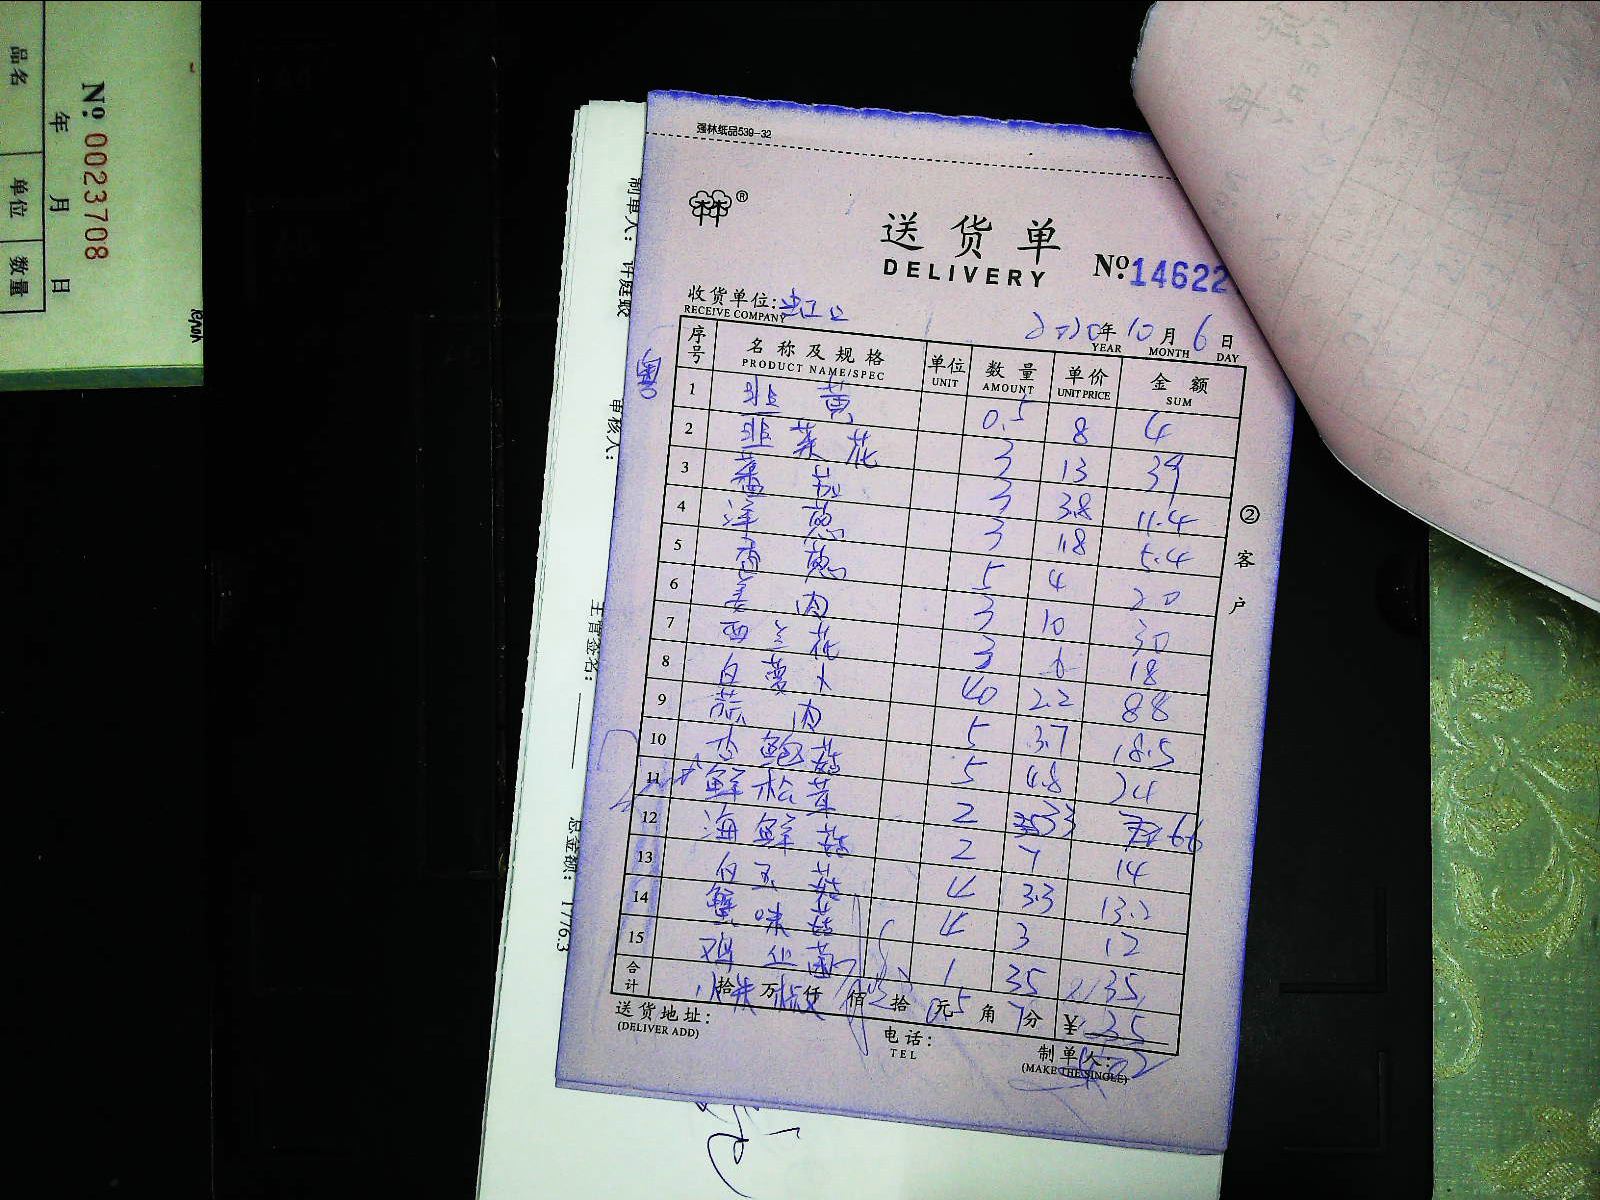 品名
单位
数量
№ 0023708
年 月 日
制单人: 许庭
审核人:
主管签名:
总金额: 1776.3
强林纸品539-32
®
送货单
DELIVERY
№ 14622
收货单位: 虹口
RECEIVE COMPANY
2020年 10月 6日
YEAR MONTH DAY
序号 名称及规格 单位 数量 单价 金额
PRODUCT NAME/SPEC UNIT AMOUNT UNIT PRICE SUM
1 韭黄 0.5 8 4
2 韭菜花 3 13 39
3 蕃茄 3 3.8 11.4
4 洋葱 3 1.8 5.4
5 香葱 5 4 20
6 姜肉 3 10 30
7 西兰花 3 6 18
8 白萝卜 40 2.2 88
9 蒜肉 5 3.7 18.5
10 杏鲍菇 5 4.8 24
11 鲜松茸 2 33 66
12 海鲜菇 2 7 14
13 白玉菇 4 3.3 13.2
14 蟹味菇 4 3 12
15 鸡丛菌 1 35 35
合计 拾 万 仟 佰 拾 元 角 分 ¥
送货地址:
(DELIVER ADD)
电话:
TEL
制单人:
(MAKE THE SINGLE)
② 客户